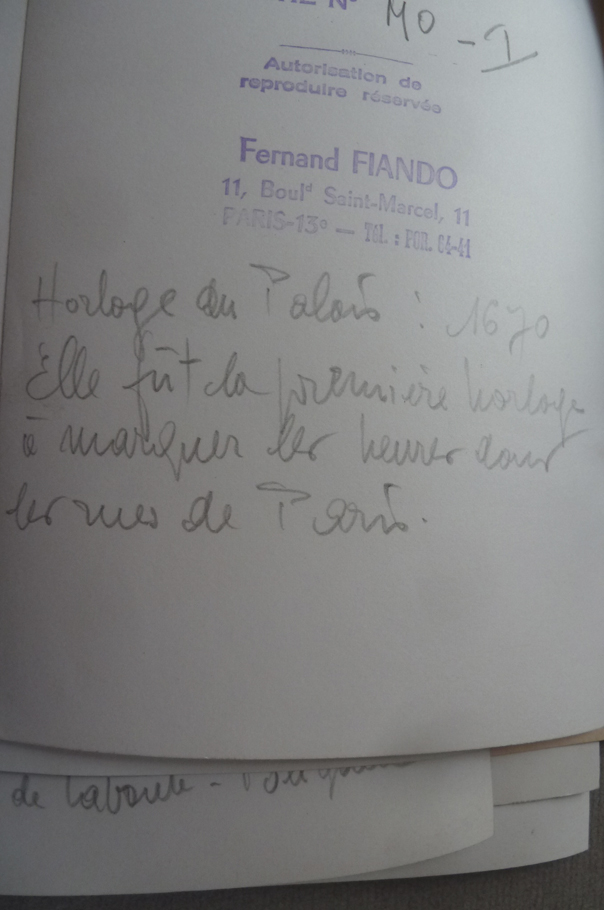 N° MO-I
Autorisation de
reproduire réservée
Fernand FIANDO
11, Boulᵈ Saint-Marcel, 11
PARIS-13ᵉ — Tél. : POR. 64-41
Horloge du Palais : 1670
Elle fût la première horloge
à marquer les heures dans
les rues de Paris.
de